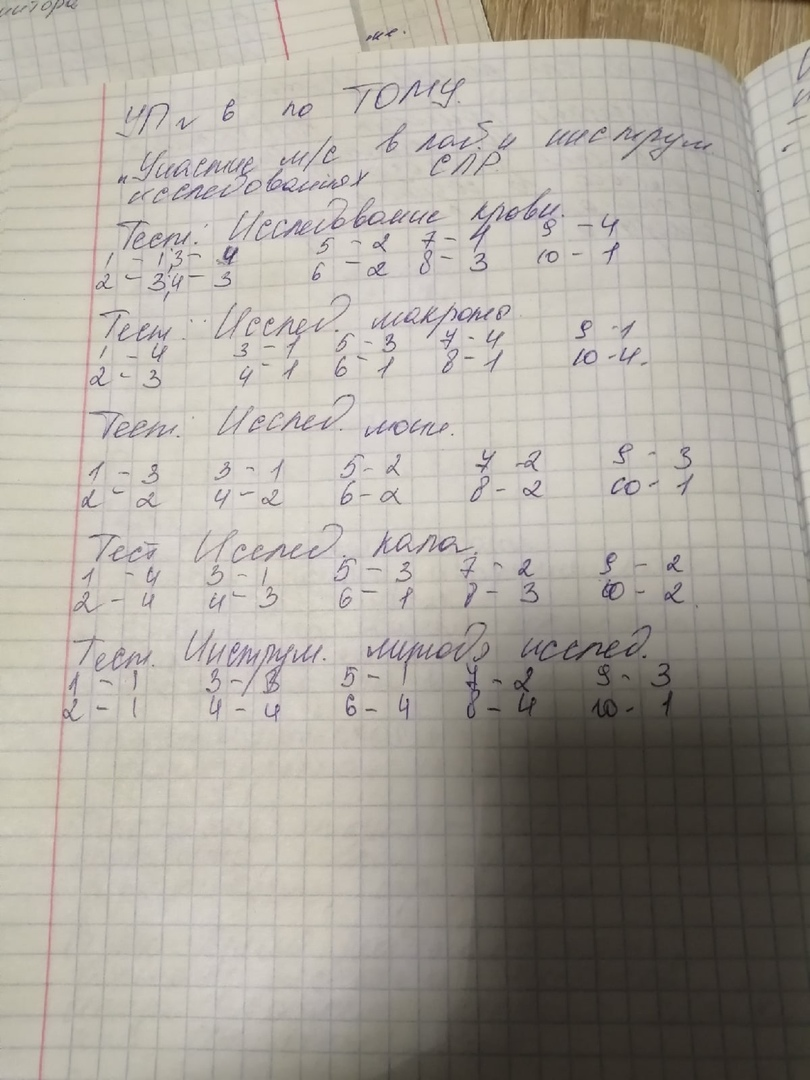 УП № 6 по ТОМУ.
"Участие м/с в лаб. и инструм
исследованиях СЛР.
Тест: Исследование крови.
1 - 1; 3 - 4 5 - 2 7 - 4 9 - 4
2 - 3; 4 - 3 6 - 2 8 - 3 10 - 1
Тест: Исслед. мокроты.
1 - 4 3 - 1 5 - 3 7 - 4 9 - 1
2 - 3 4 - 1 6 - 1 8 - 1 10 - 4.
Тест: Исслед. мочи.
1 - 3 3 - 1 5 - 2 7 - 2 9 - 3
2 - 2 4 - 2 6 - 2 8 - 2 10 - 1
Тест Исслед. кала.
1 - 4 3 - 1 5 - 3 7 - 2 9 - 2
2 - 4 4 - 3 6 - 1 8 - 3 10 - 2
Тест. Инструм. методы исслед.
1 - 1 3 - 3 5 - 1 7 - 2 9 - 3
2 - 1 4 - 4 6 - 4 8 - 4 10 - 1